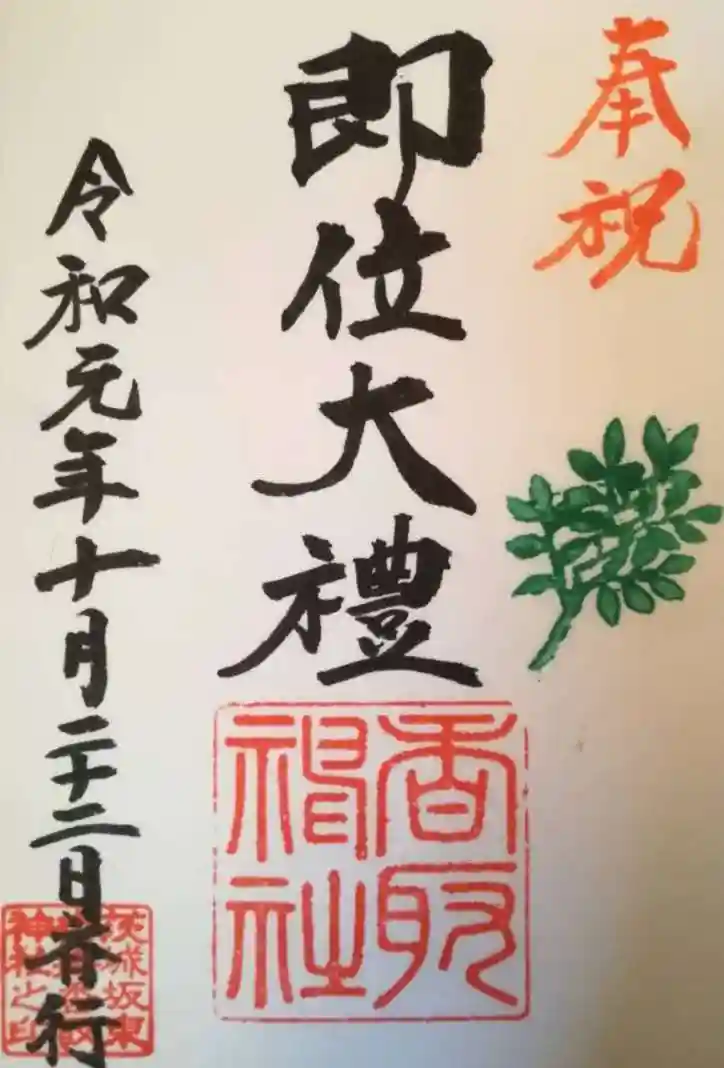 奉祝
即位大禮
香取
神社
令和元年十月二十二日斎行
茨城坂東
神社之印